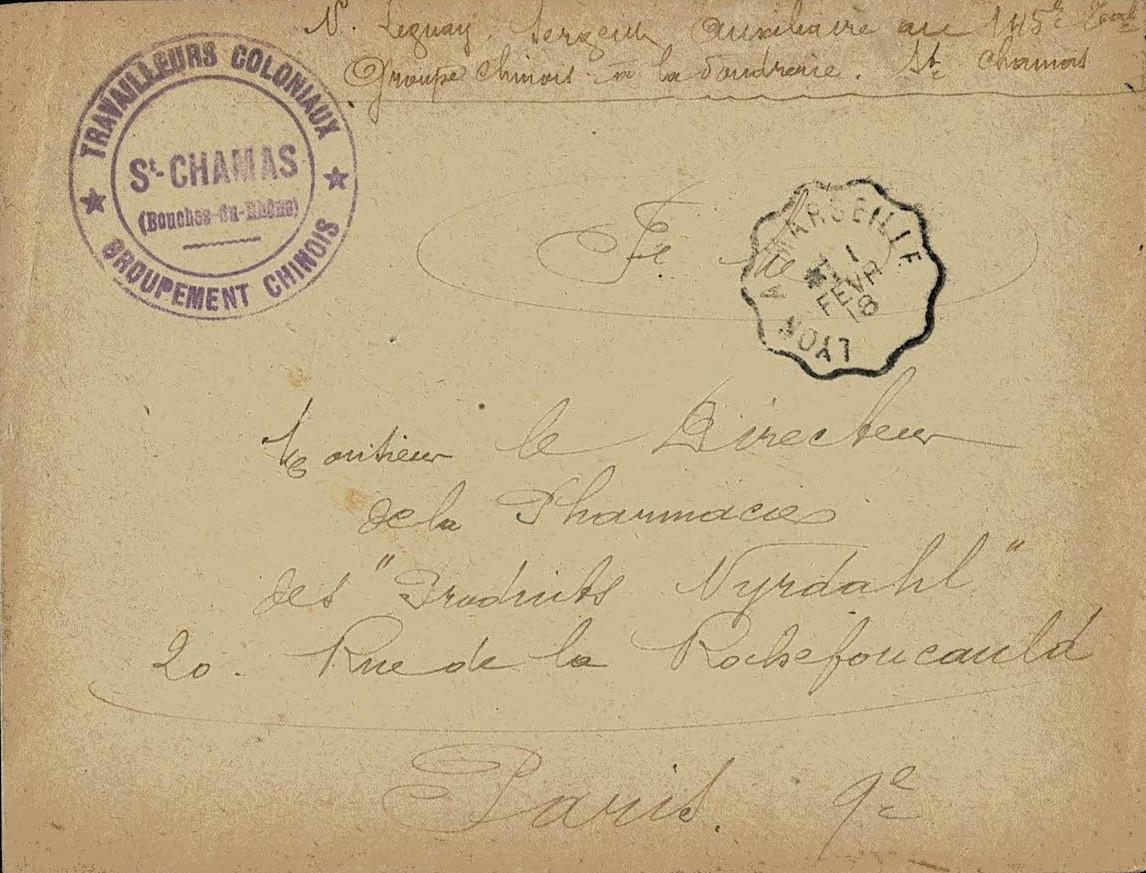 N. Leguay. Sergent auxiliaire au 145e Terral
Groupe chinois à la Poudrerie. St Chamas
TRAVAILLEURS COLONIAUX
St-CHAMAS
(Bouches-du-Rhône)
GROUPEMENT CHINOIS
MARSEILLE A LYON
1
FEVR
18
Monsieur le Directeur
de la Pharmacie
des "Produits Nyrdahl"
20. Rue de la Rochefoucauld
Paris. 9e